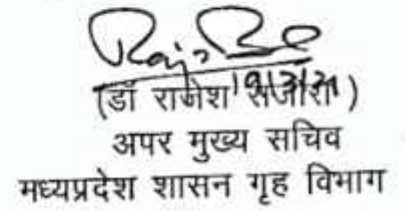 19/3/21
(डॉ राजेश राजौरा)
अपर मुख्य सचिव
मध्यप्रदेश शासन गृह विभाग